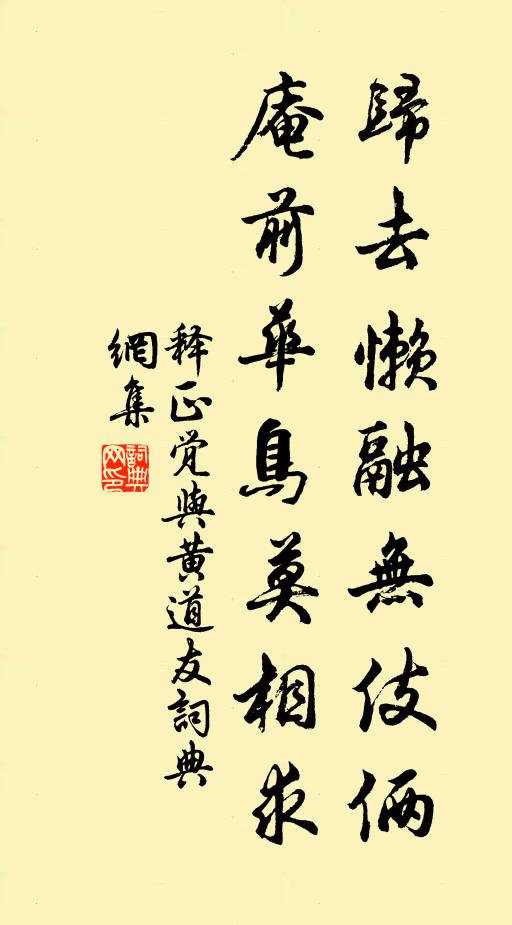 歸去懶融無伎倆
庵前華鳥莫相求
释正觉與黄道友詞典
網集
詞典
网印